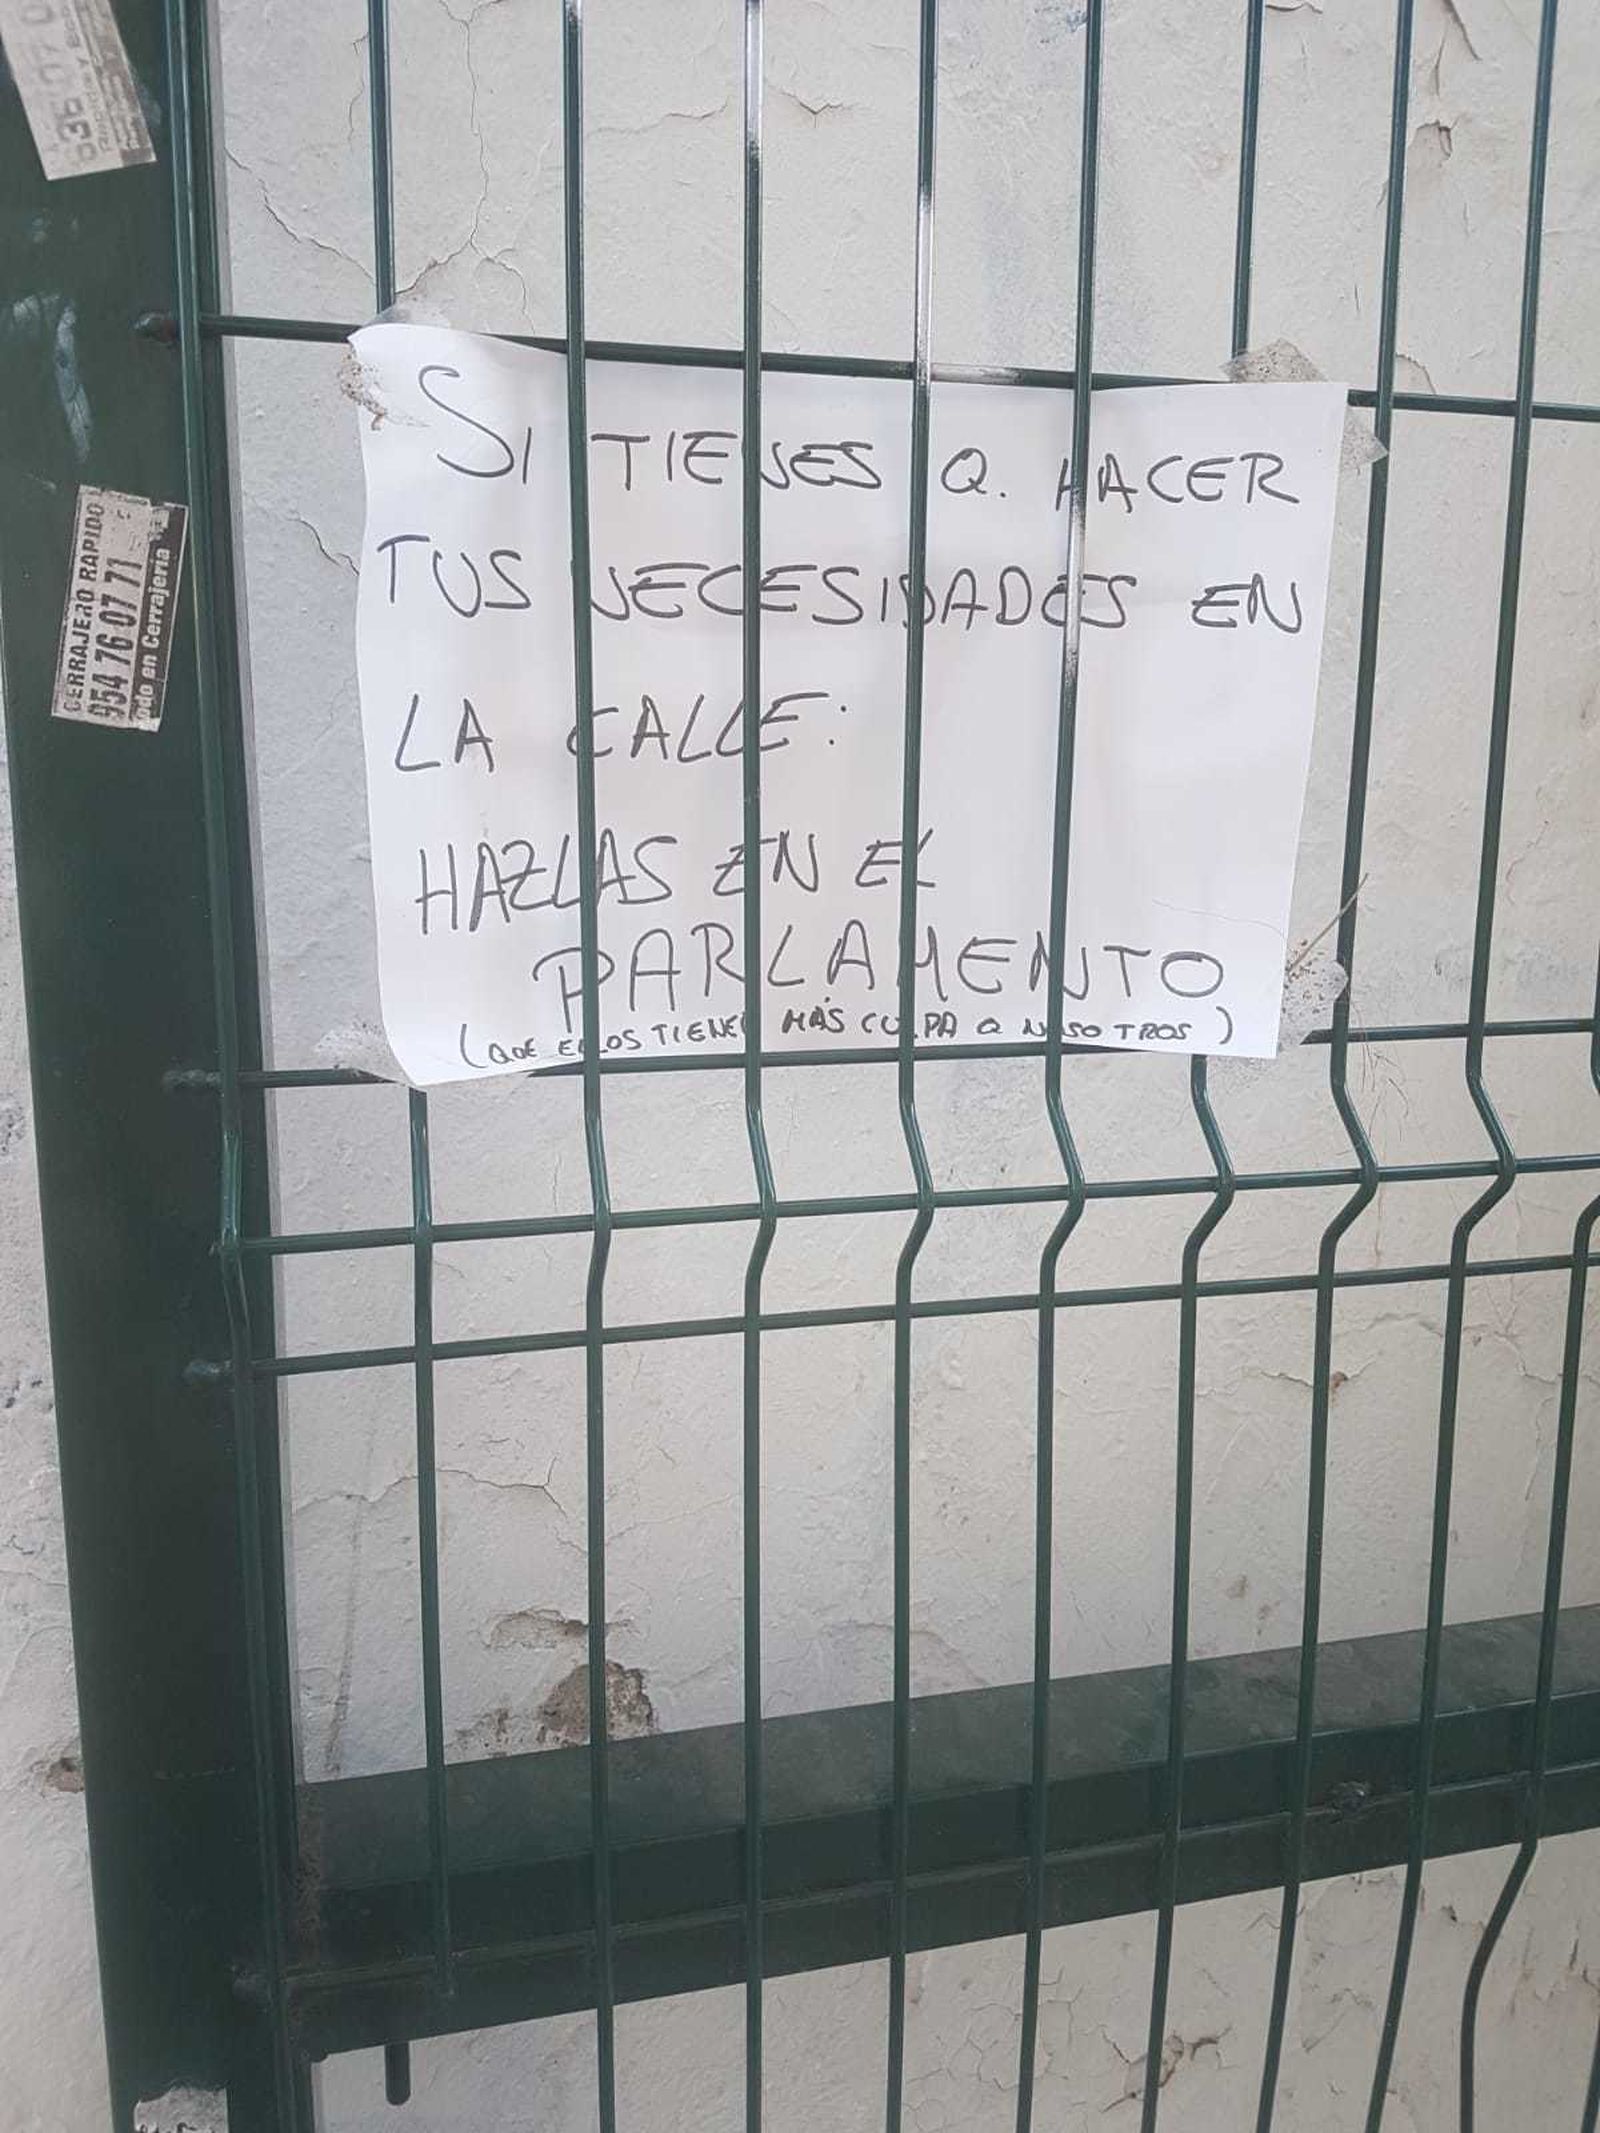 SI TIENES Q. HACER
TUS NECESIDADES EN
LA CALLE:
HAZLAS EN EL
PARLAMENTO
(QUE ELLOS TIENEN MÁS CULPA Q NOSOTROS)
CERRAJERO RAPIDO
954 76 07 71
en Cerrajeria